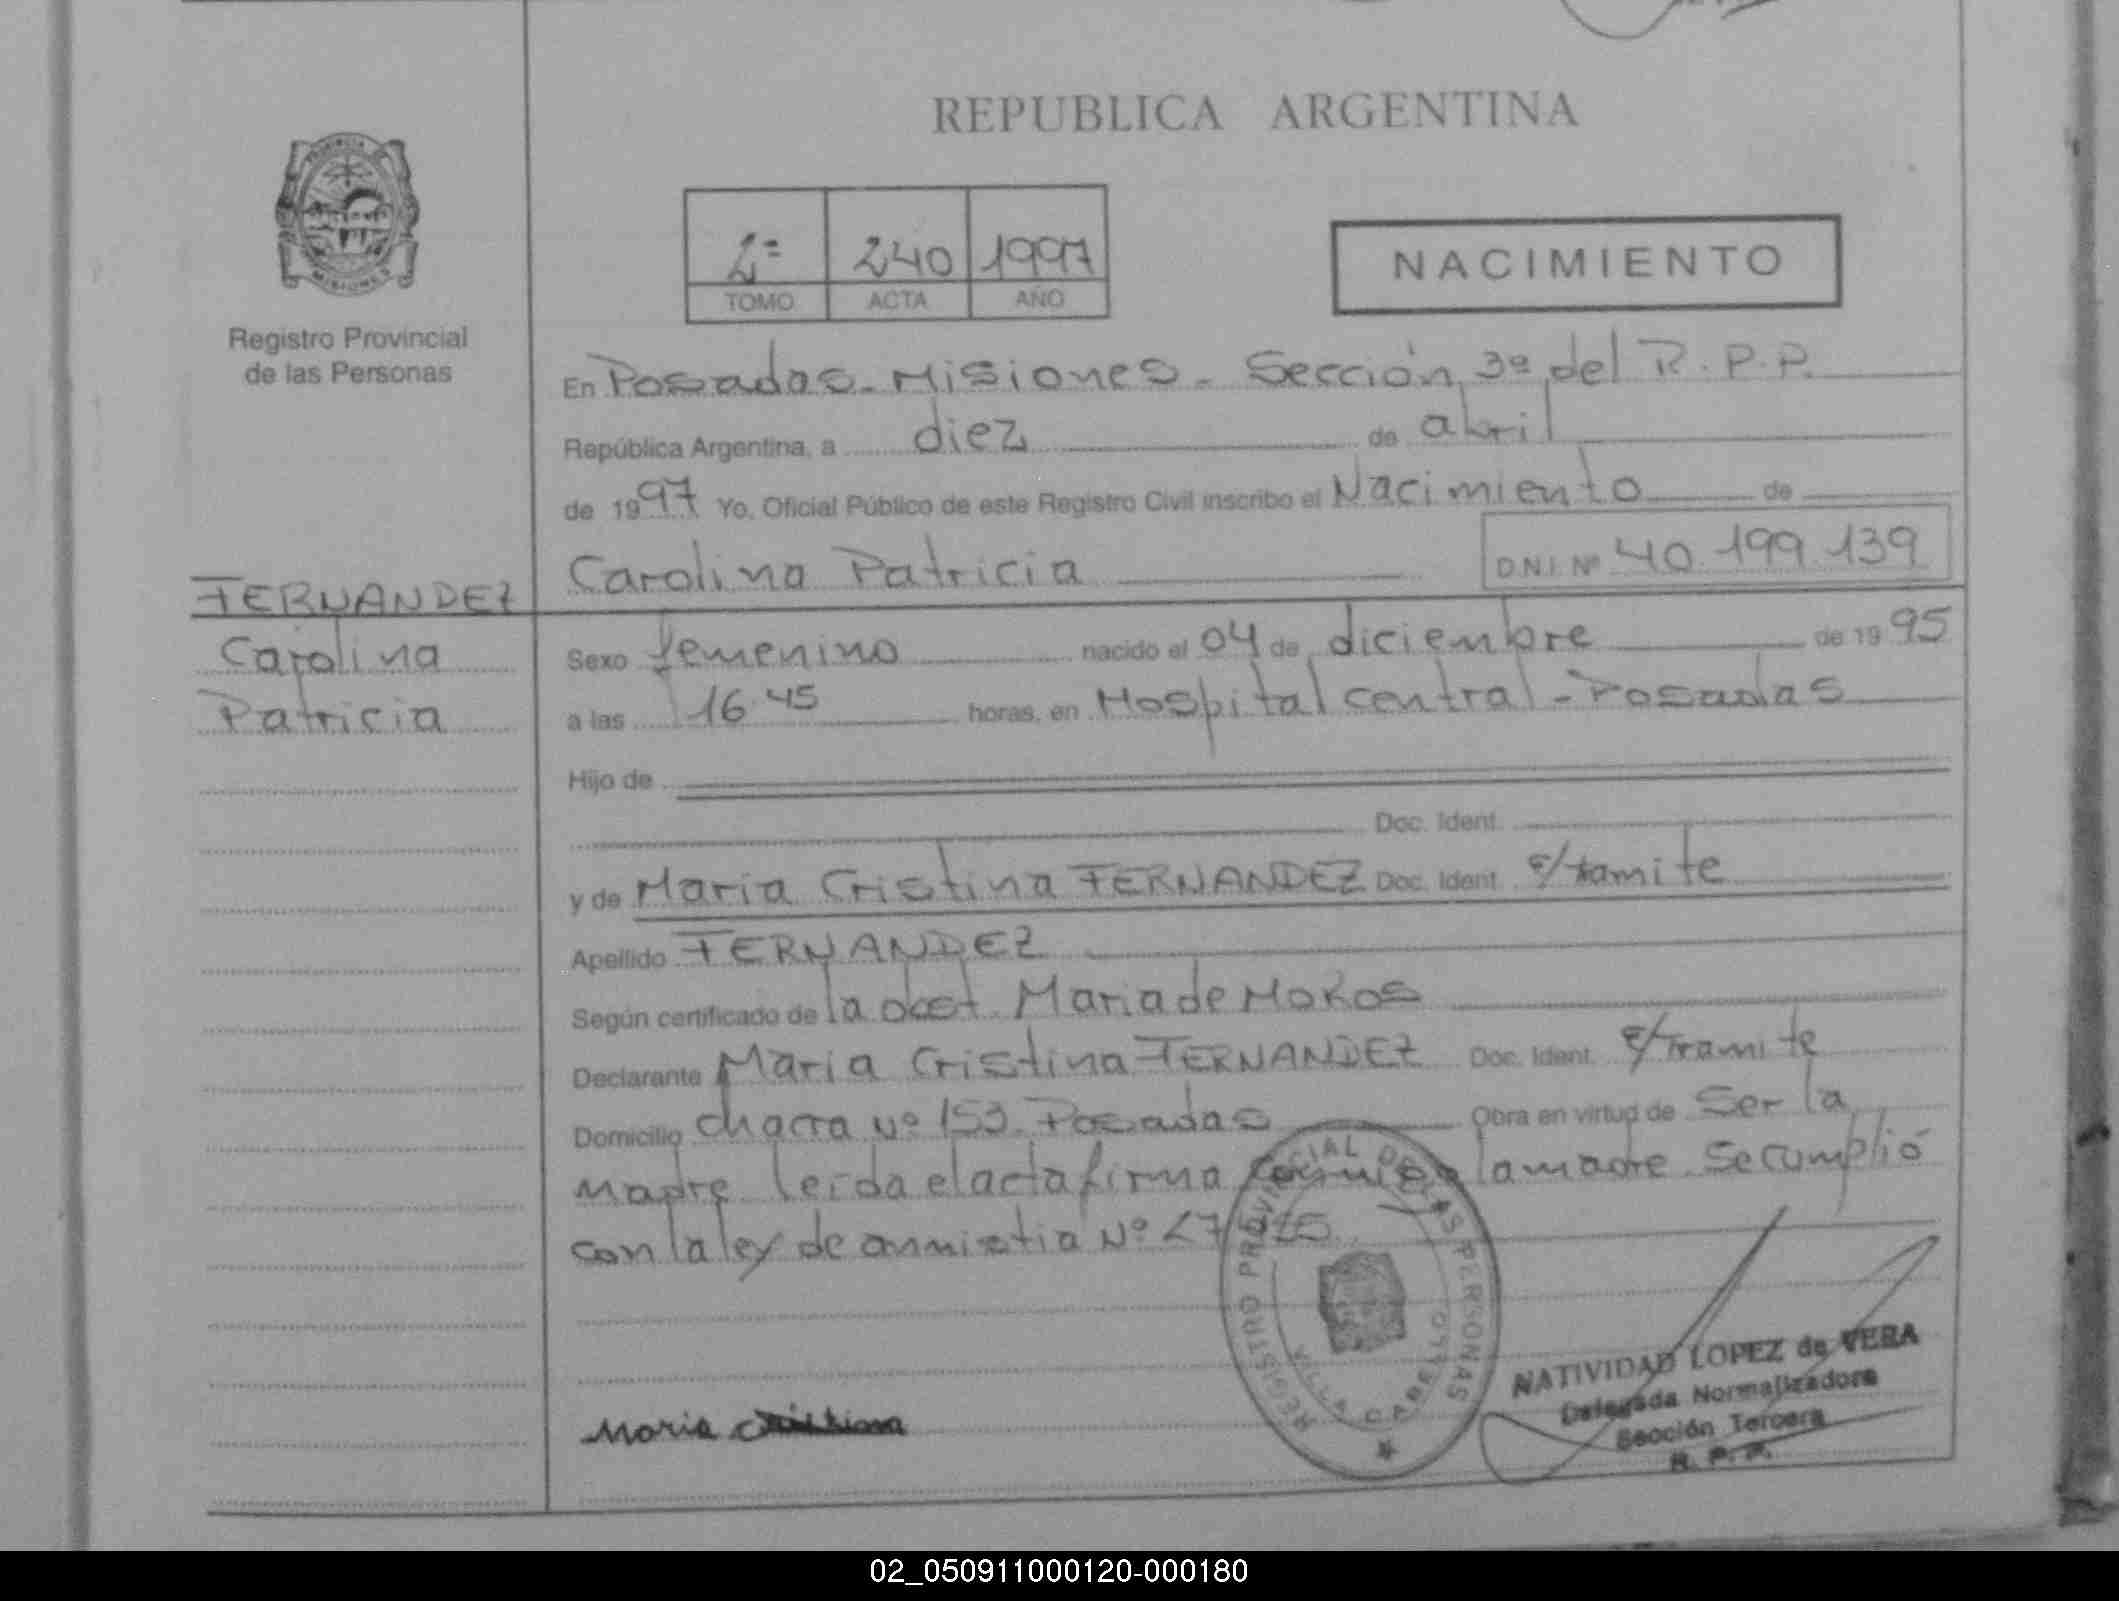 REPUBLICA ARGENTINA
PROVINCIA DE
MISIONES
Registro Provincial
de las Personas
2º 240 1997
TOMO ACTA AÑO
NACIMIENTO
En Posadas - Misiones - Sección 3ª del R.P.P.
República Argentina, a diez de abril
de 1997 Yo, Oficial Público de este Registro Civil inscribo el Nacimiento de
Carolina Patricia D.N.I. Nº 40.199.139
FERNANDEZ
Carolina
Patricia
Sexo femenino nacido el 04 de diciembre de 1995
a las 16 45 horas, en Hospital central - Posadas
Hijo de
Doc. Ident.
y de Maria Cristina FERNANDEZ Doc. Ident. e/tramite
Apellido FERNANDEZ
Según certificado de la obst. Maria de
Declarante Maria Cristina FERNANDEZ Doc. Ident. e/tramite
Domicilio chacra Nº 153 Posadas Obra en virtud de Ser la
madre leida el acta firma conmigo la madre Se cumplió
con la ley de amnistia Nº
Maria Cristina
REGISTRO PROVINCIAL DE LAS PERSONAS
VILLA CABELLO
NATIVIDAD LOPEZ de VERA
Delegada Normalizadora
Sección Tercera
R. P. P.
02_050911000120-000180